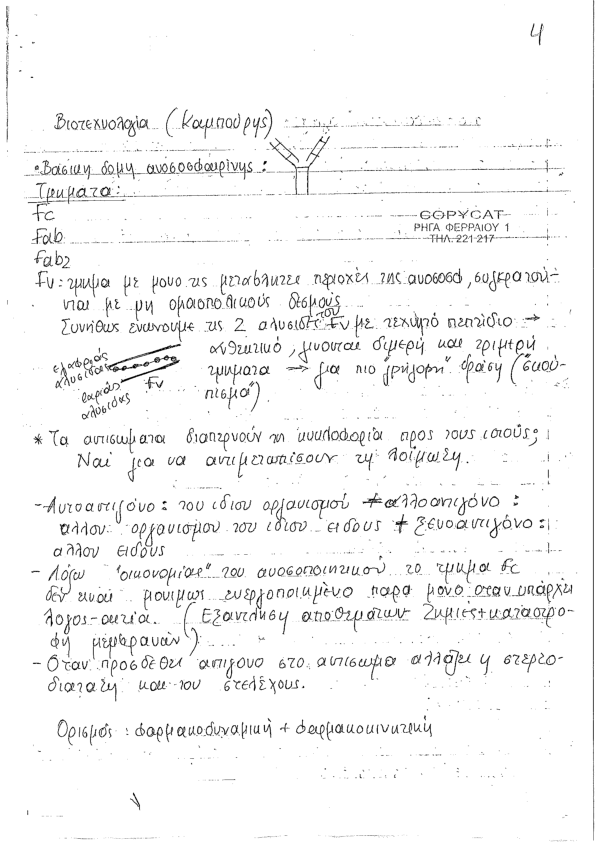 4
Βιοτεχνολογία (Καμπούρης)
•Βασικη δομη ανοσοσφαιρίνης:
Τμηματα:
COPYCAT
ΡΗΓΑ ΦΕΡΡΑΙΟΥ 1
ΤΗΛ. 221 217
Fc
Fab
Fab2
Fv: τμημα με μονο τις μεταβλητες περιοχές της ανοσοσφ, συγκρατού-
νται με μη ομοιοπολικούς δεσμούς
Συνήθως ενώνουμε τις 2 αλυσίδες του Fv με τεχνητό πεπτίδιο →
ανθεκτικό, γινονται διμερή και τριμερή
τμηματα → για πιο "γρήγορη" δραση ("σκού-
πισμα").
ελαφριάς
αλυσίδας
Fv
βαριάς
αλύσιδας
* Τα αντισωματα διαπερνούν τη κυκλοφορία προς τους ιστούς;
Ναί για να αντιμετωπίσουν τη λοίμωξη.
- Αυτοαντιγόνο: του ιδιου οργανισμού ≠ αλλοαντιγόνο:
αλλου οργανισμου του ιδιου ειδους ≠ ξενοαντιγόνο:
αλλου ειδους
- Λόγω "οικονομίας" του ανοσοποιητικού το τμημα Fc
δεν ειναι μονιμως ενεργοποιημένο παρα μονο οταν υπάρχει
λογος-αιτία. (Εξαντληση αποθεμάτων ζημιές+καταστρο-
φη μεμβρανών)
- Οταν προσδεθεί αντιγονο στο αντισωμα αλλάζει η στερεο-
διαταξη και του στελέχους.
Ορισμός: Φαρμακοδυναμική + Φαρμακοκινητική